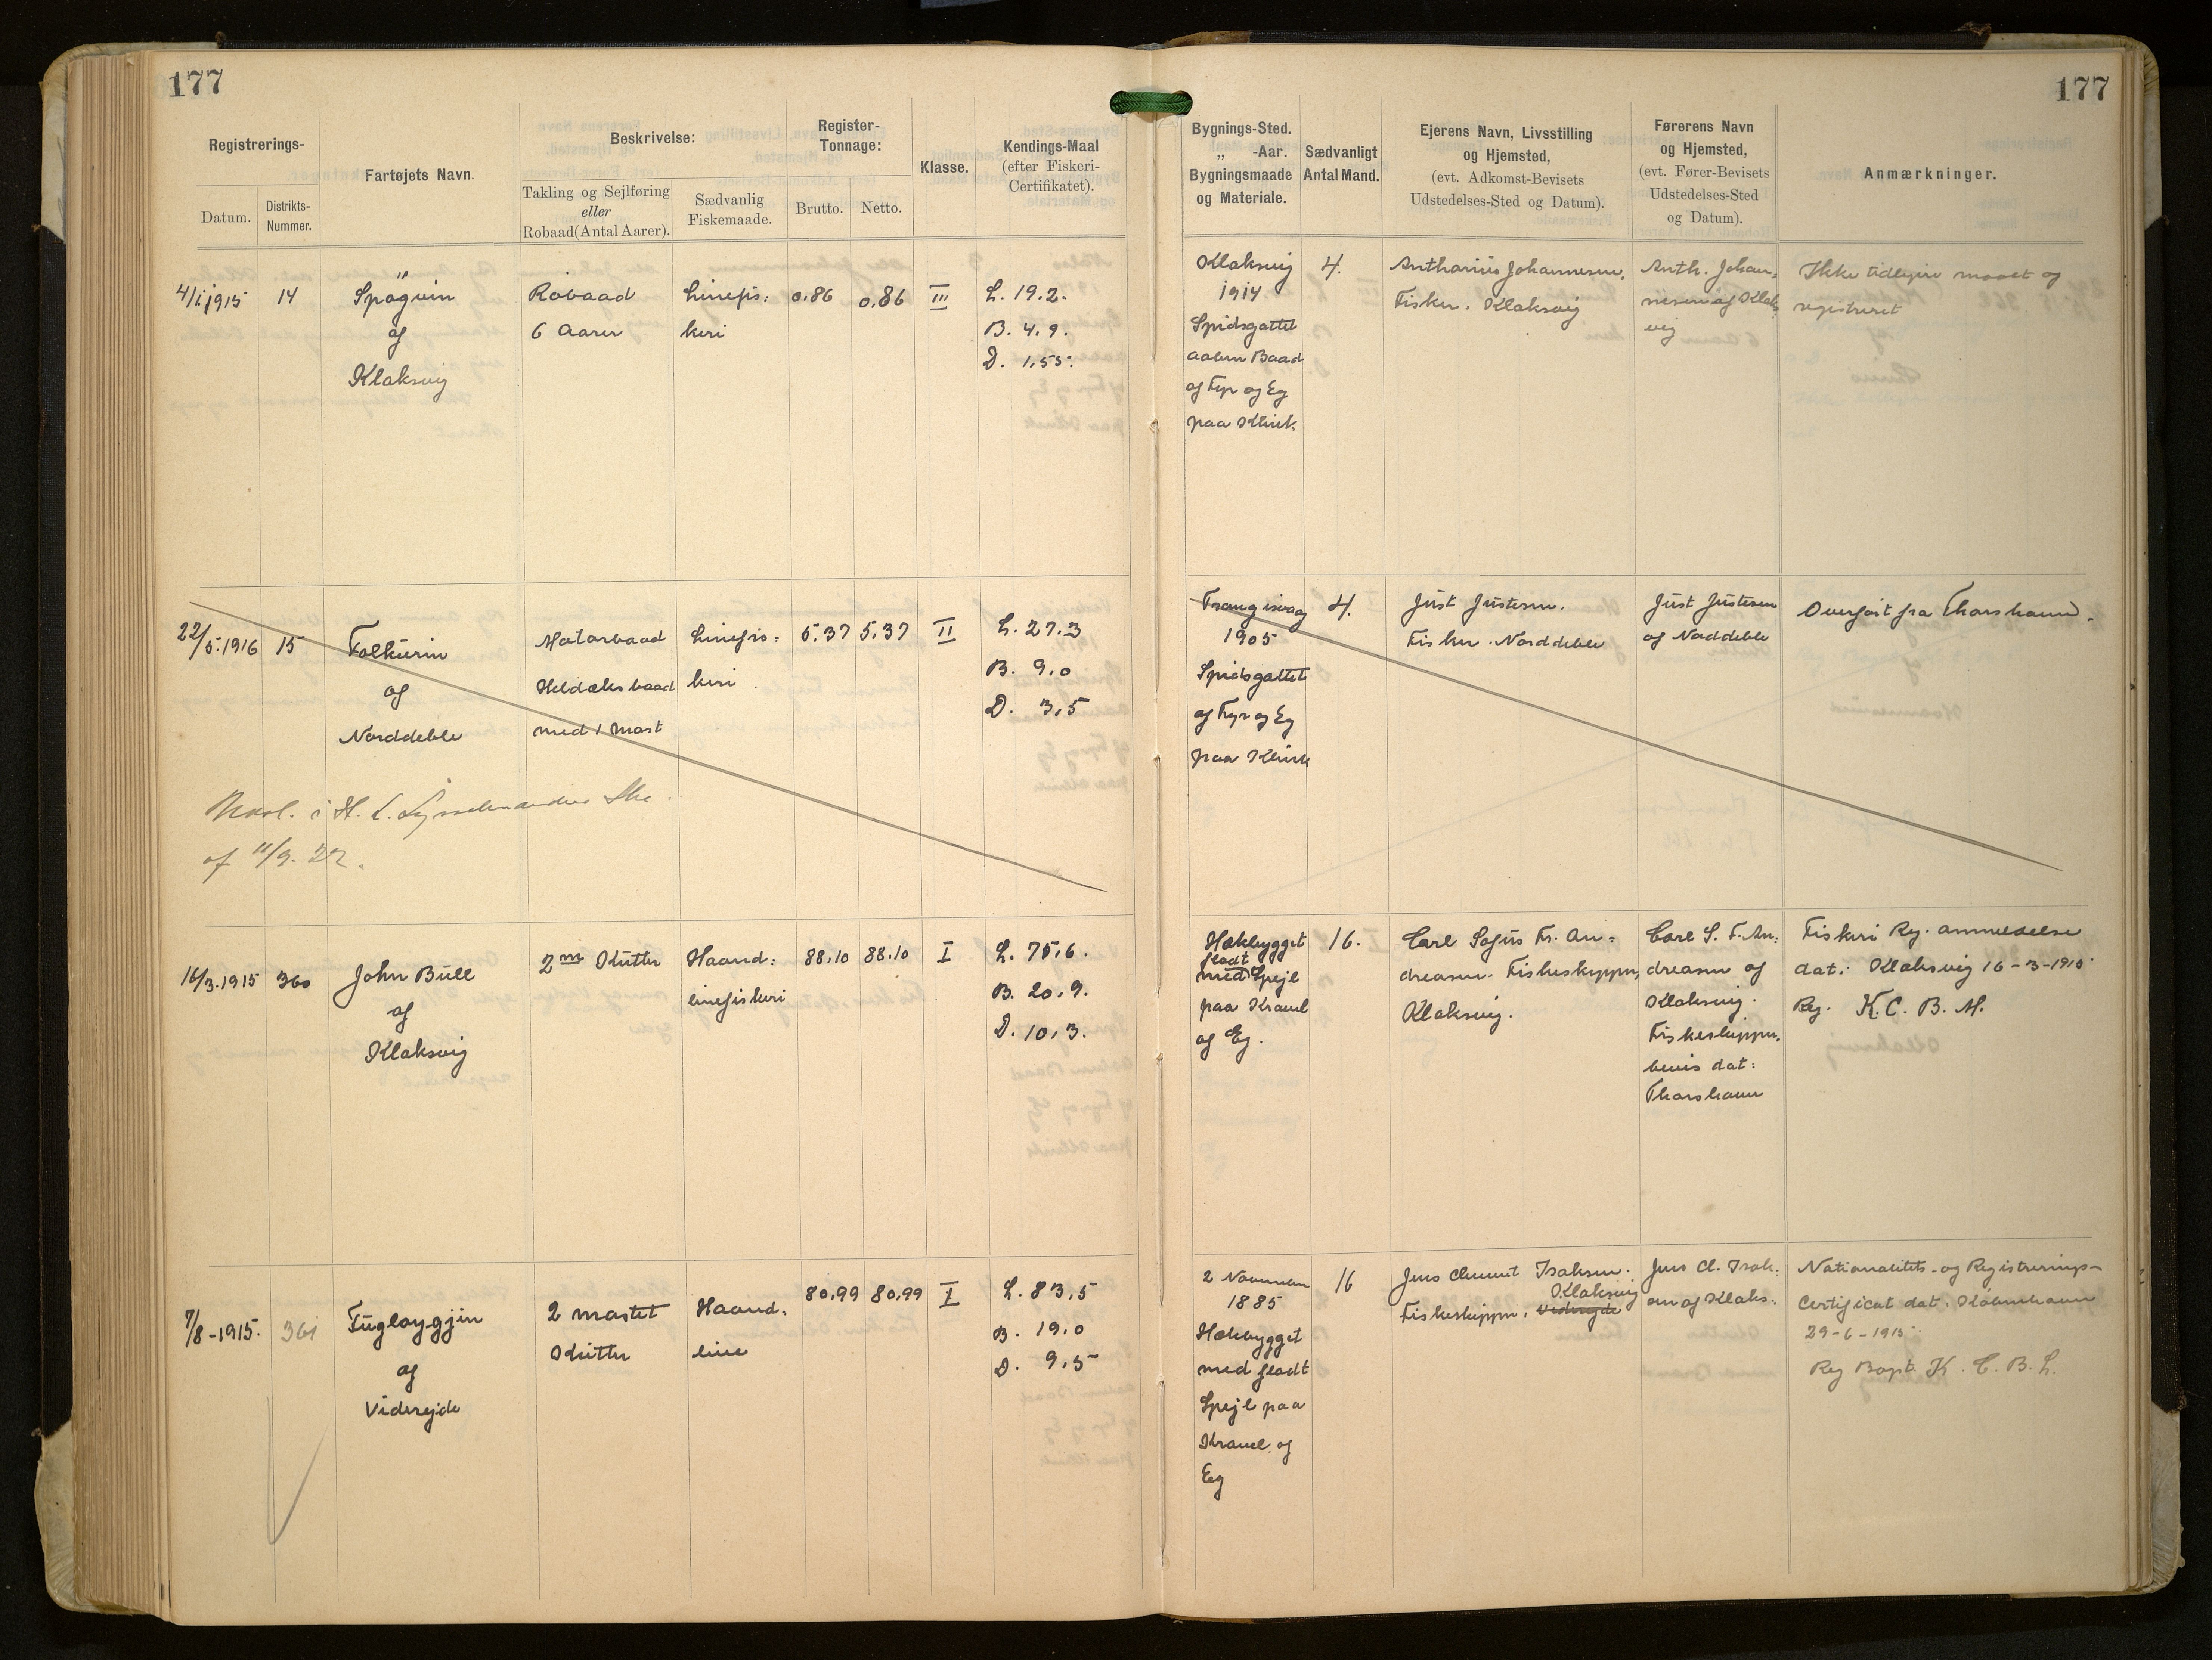 177
177
Registrerings-
Datum.
Distrikts-
Nummer.
Fartøjets Navn.
Beskrivelse:
Takling og Sejlføring
eller
Robaad (Antal Aarer).
Sædvanlig
Fiskemaade.
Register-
Tonnage:
Brutto.
Netto.
Klasse.
Kendings-Maal
(efter Fiskeri-
Certifikatet).
Bygnings-Sted.
„ -Aar.
Bygningsmaade
og Materiale.
Sædvanligt
Antal Mand.
Ejerens Navn, Livsstilling
og Hjemsted,
(evt. Adkomst-Bevisets
Udstedelses-Sted og Datum).
Førerens Navn
og Hjemsted,
(evt. Fører-Bevisets
Udstedelses-Sted
og Datum).
Anmærkninger.
4/1 1915
14
Spögvin
af
Klaksvig
Robaad
6 Aarer
Linefis:
keri
0.86
0.86
III
L. 19.2.
B. 4.9.
D. 1.55.
Klaksvig
1914
Spidsgattet
aaben Baad
af Fyr og Eg
paa Klink
4.
Antharius Johannesen.
Fisker. Klaksvig
Anth. Johan,
nesen af Klak
vig
Ikke tidligere maalt og
registreret
22/5.1916
15
Folkurin
af
Norddeble
Motorbaad
Heldæksbaad
med 1 Mast
Linefis:
keri
5.37
5.37
II
L. 27.3
B. 9.0
D. 3,5
Trangisvaag
1905
Spidsgattet
af Fyr og Eg
paa Klink
4.
Just Justesen.
Fisker. Norddeble
Just Justesen
af Norddeble
Overført fra Thorshavn.
i H. L. Sysselmandens Skr.
af 11/9. 22.
16/3.1915
360
John Bull
af
Klaksvig
2 m Kutter
Haand:
linefiskeri
88.10
88.10
I
L. 75.6.
B. 20.9.
D. 10.3.
Hækbygget
fladt
med Spejl
paa Kravel
og Eg.
16.
Carl Sofus Fr. An:
dreasen. Fiskeskipper,
Klaksvig.
Carl S. F. An:
dreasen af
Klaksvig.
Fiskeskipper.
bevis dat:
Thorshavn
Fiskeri Reg. anmeldelse
dat: Klaksvig 16-3-1915
Reg. K. C. B. M.
7/8-1915.
361
Fugloyggjin
af
Viderejde
2 mastet
Kutter
Haand.
line
80,99
80,99
I
L. 83,5
B. 19.0
D. 9,5
1885
Hækbygget
med fladt
Spejl paa
Kravel og
Eg
16
Jens Clement Isaksen.
Klaksvig
Fiskeskipper, Viderejde
Jens Cl. Isak:
sen af Klaks.
Nationalitets- og Registrerings-
Certificat dat. København
29-6-1915
Reg Bogst. K. C. B. L.